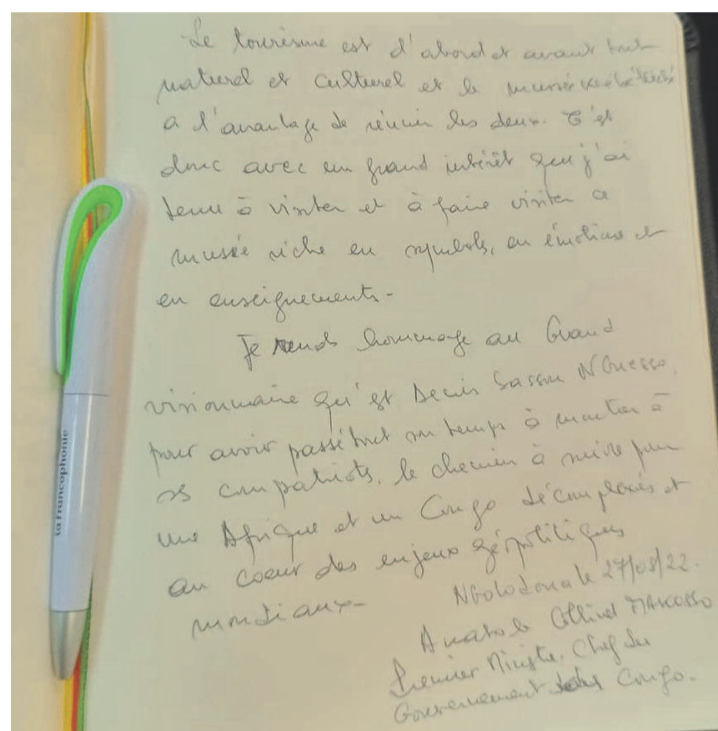 Le tourisme est d'abord et avant tout
naturel et culturel et le musée
a l'avantage de réunir les deux. C'est
donc avec un grand intérêt que j'ai
tenu à visiter et à faire visiter ce
musée riche en symbols, en émotions et
en enseignements-
Je rends hommage au Grand
visionnaire qu'est Denis Sassou NGuesso,
pour avoir passé tout son temps à montrer à
ses compatriots, le chemin à suivre pour
une Afrique et un Congo décomplexés et
au coeur des enjeux géopolitiques
mondiaux-
le 27/08/22.
Anatole Collinet MAKOSSO
Premier Ministre, Chef du
Gouvernement Congo.
la Francophonie